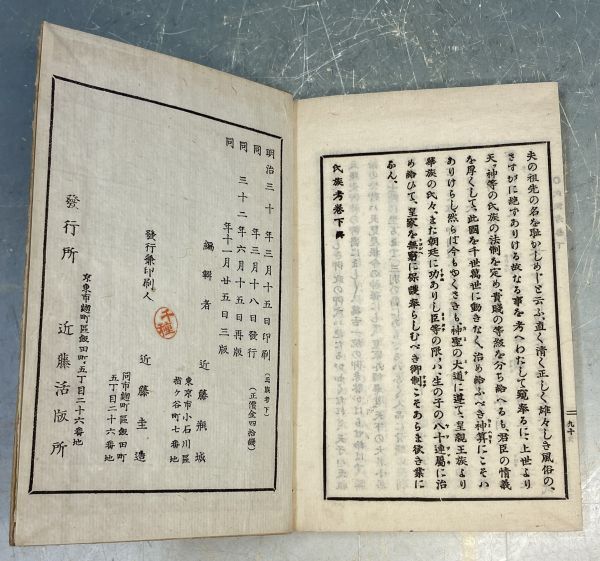 夫の祖先の名を耻かしめじと云ふ、直く淸く正しく、雄々しき風俗の、
さすがに絶ずありける故なる事を考へわたして窺奉るに、上世より
天ッ神等の氏族の法制を定め、貴賤の等級を分ち給へるも、君臣の情義
を厚くして、此國を千世萬世に動きなく、治め給ふべき神算にこそハ
ありけらし、然らば今もゆくさきも、神聖の大道に遵て、皇親王族より
華族の氏々、また朝廷に功ありし臣等の限、ハ、生の子の八十連屬に治
め給ひて、皇家を無窮に保護奉らしむべき御制こそあらま欲き業に
なん、
氏族考卷下 終
九十
明治三十年三月十五日印刷 (氏族考下)
同 年三月十八日發行 (正價金四拾錢)
同 三十二年六月十五日再版
同 年十一月廿五日三版
編輯者 近藤瓶城
東京市小石川區
指ヶ谷町七番地
發行兼印刷人 近藤圭造
千種
同市麴町區飯田町
五丁目二十六番地
發行所 近藤活版所
京東市麴町區飯田町五丁目二十六番地